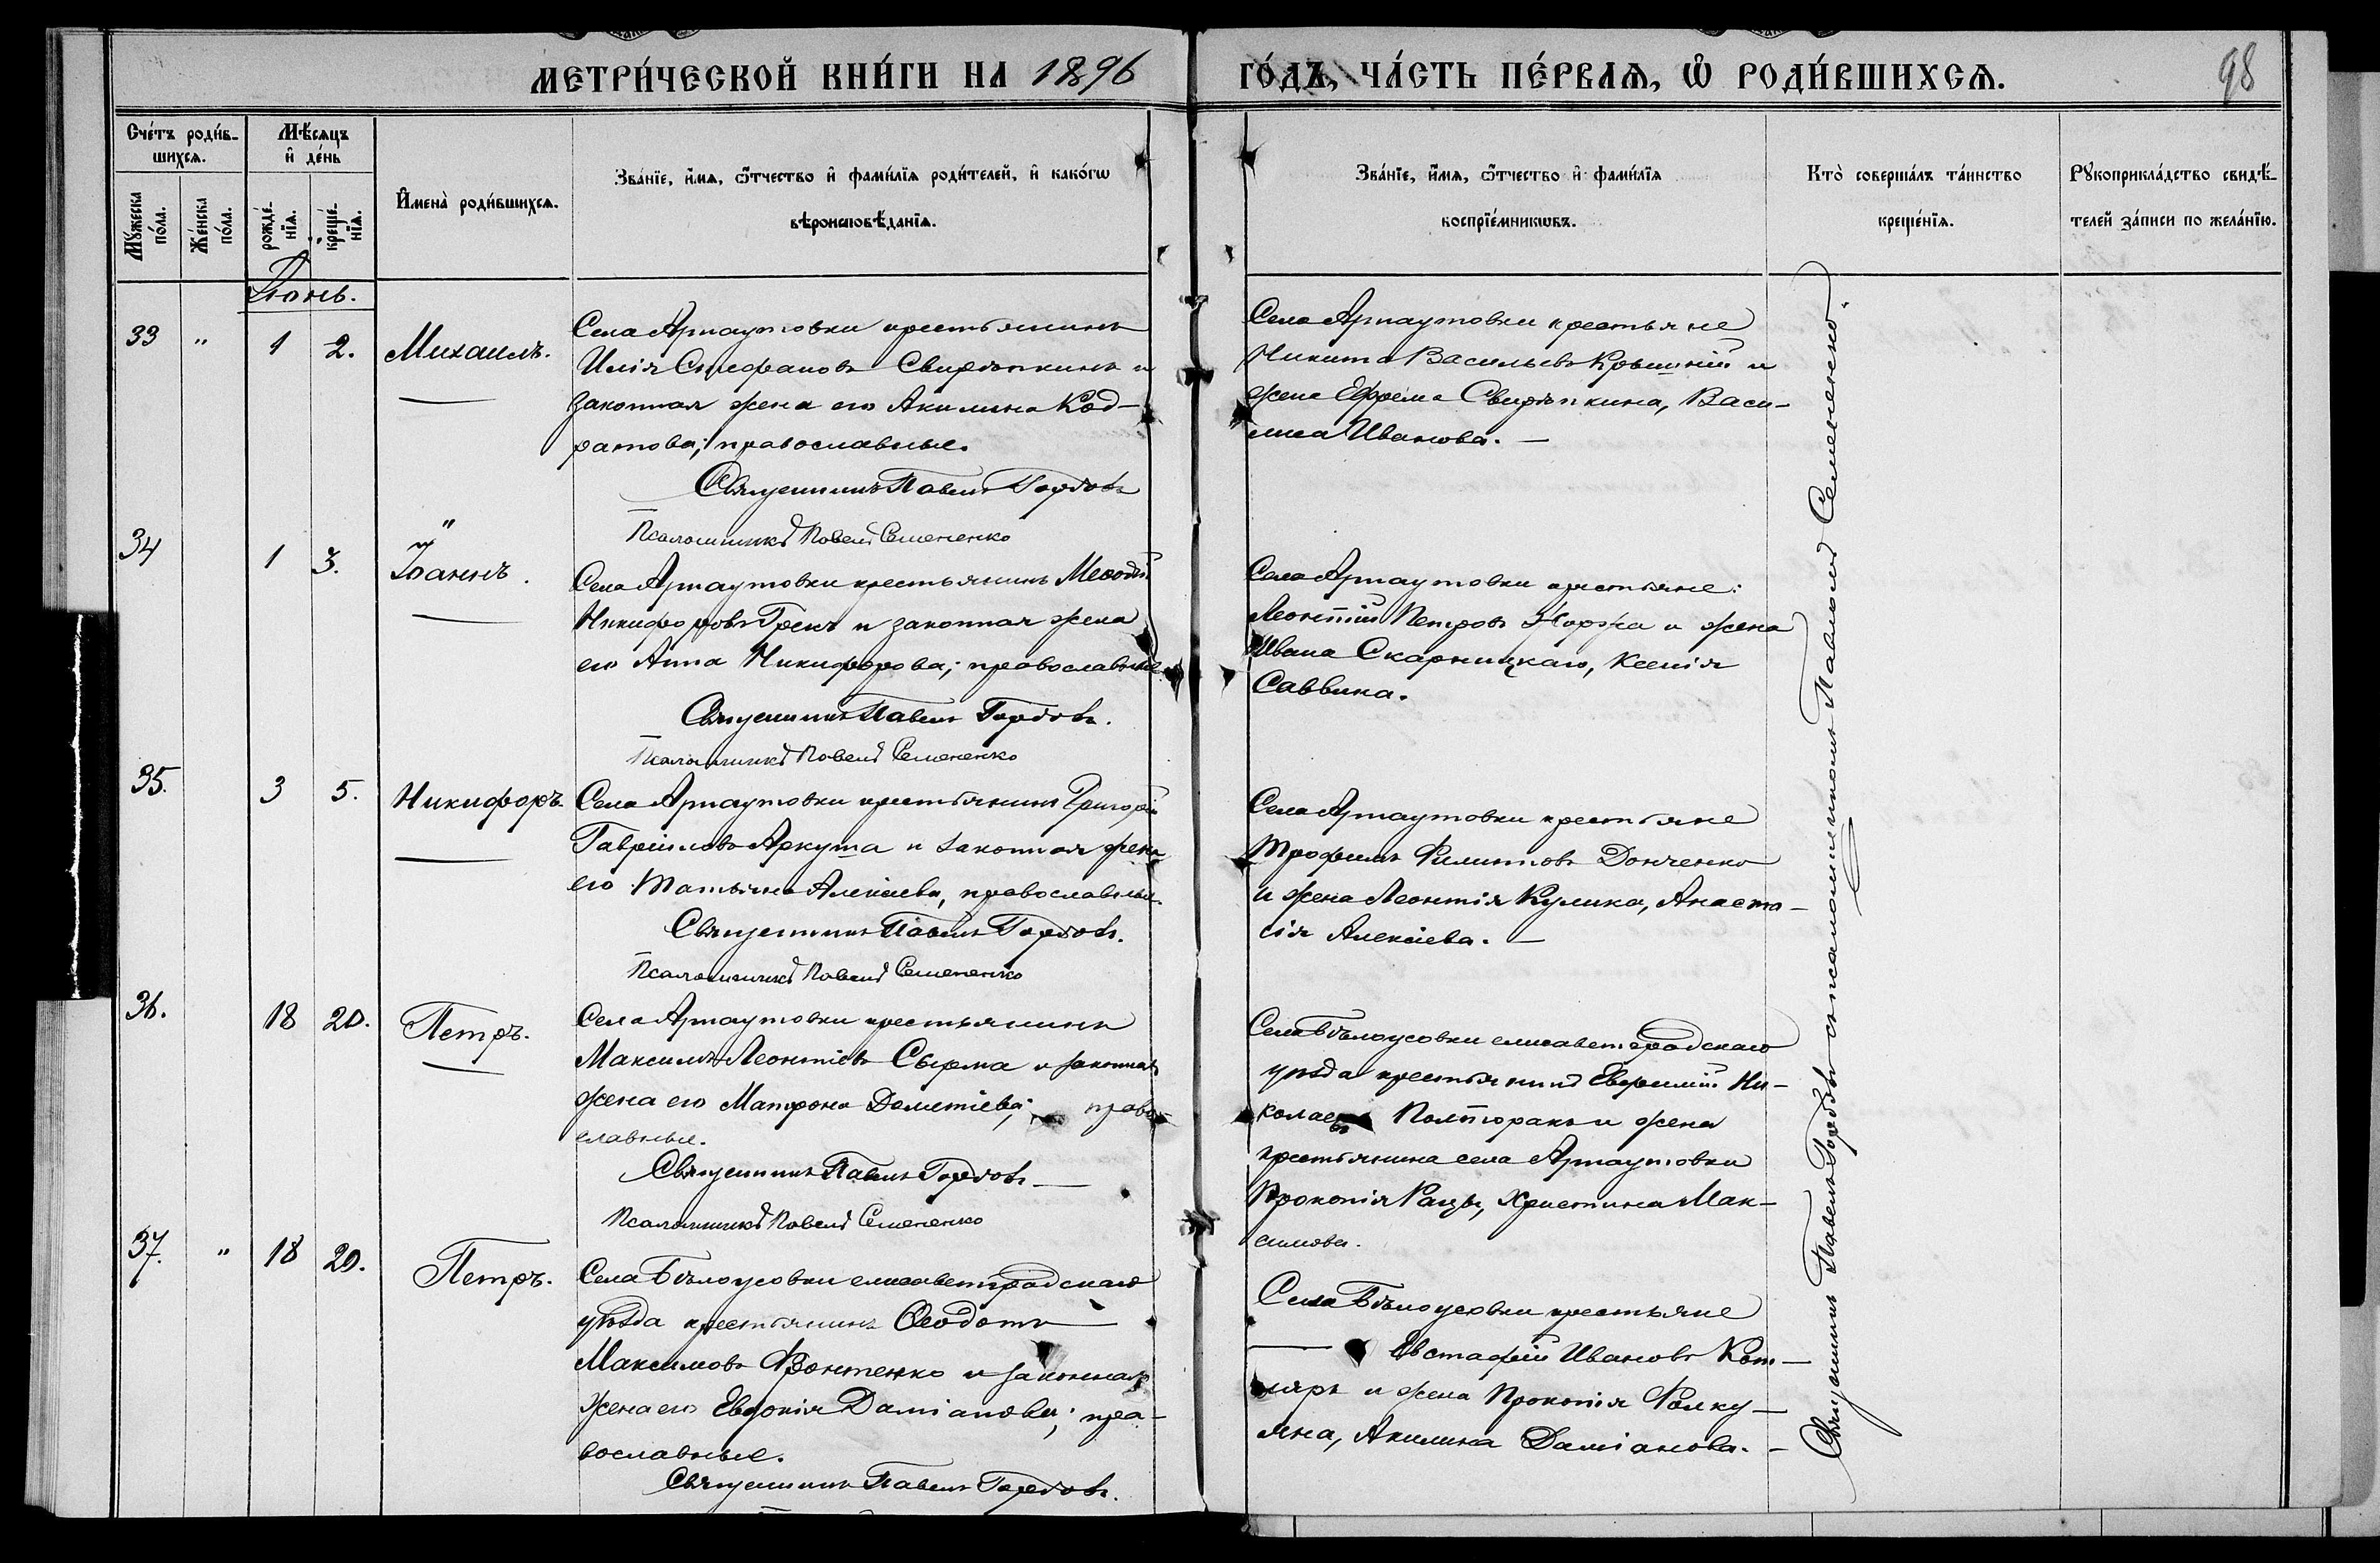 МЕТРИ́ЧЕСКОЙ КНИ́ГИ НА 1896
ГО́ДЪ, ЧА́СТЬ ПЕ́РВАѦ, Ѡ РОДИ́ВШИХСѦ.
98
Сче́тъ роди́в-
шихсѧ.
Мѣ́сѧцъ
и де́нь
Имена̀ роди́вшихсѧ.
Зва́нїе, и́мѧ, ѻ́тчество и фами́лїѧ роди́телей, и како́гѡ
вѣроисповѣ́данїѧ.
Му́жеска
по́ла.
Же́нска
по́ла.
рожде́-
нїѧ.
креще́-
нїѧ.
Зва́нїе, и́мѧ, ѻ́тчество и фами́лїѧ
воспрїе́мникѡвъ.
Кто̀ соверша́лъ та́инство
креще́нїѧ.
Рꙋкоприкла́дство свидѣ́-
телей за́писи по жела́нїю.
Іюнь.
33 " 1 2. Михаилъ.
Села Арнаутовки крестьянинъ
Илія Стефановъ Свирѣпкинъ и
законная жена его Акилина Код-
ратова; православные.
Священникъ Павелъ Горбовъ
Псаломщикъ Павелъ Семененко
Села Арнаутовки крестьяне
Никита Васильевъ и
жена Ефрема Свирѣпкина, Васи-
лиса Иванова.
34 " 1 3. Іоаннъ.
Села Арнаутовки крестьянинъ Меѳодій
Никифоровъ Грекъ и законная жена
его Анна Никифорова; православные
Священникъ Павелъ Горбовъ.
Псаломщикъ Павелъ Семененко
Села Арнаутовки крестьяне:
Леонтій Петровъ Коржа и жена
Ивана Скарницкаго, Ксенія
Саввина.
35. 3 5. Никифоръ
Села Арнаутовки крестьянинъ Григорій
Гавріиловъ Аркуша и законная жена
его Татьяна Алексіева, православные.
Священникъ Павелъ Горбовъ.
Псаломщикъ Павелъ Семененко
Села Арнаутовки крестьяне
Трофимъ Филиповъ Донченко
и жена Леонтія Кулика, Анаста-
сія Алексіева.
36. 18 20. Петръ.
Села Арнаутовки крестьянинъ
Максимъ Леонтіевъ Сырма и законная
жена его Матрона Дометіева; право-
славные.
Священникъ Павелъ Горбовъ
Псаломщикъ Павелъ Семененко
Села Бѣлоусовки елисаветградскаго
уѣзда крестьянинъ Евфимій Ни-
колаевъ Полторакъ и жена
крестьянина села Арнаутовки
Прокопія Рацы, Христина Мак-
симова.
37. " 18 20. Петръ.
Села Бѣлоусовки елисаветградскаго
уѣзда крестьянинъ Ѳеодотъ
Максимовъ Вонтенко и законная
жена его Евдокія Даміанова; пра-
вославные.
Священникъ Павелъ Горбовъ.
Села Бѣлоусовки крестьяне
Евстафій Ивановъ Кот-
ляръ и жена Прокопія Фолку-
яна, Акилина Даміанова.
Священникъ Павелъ Горбовъ съ псаломщикомъ Павломъ Семененко.